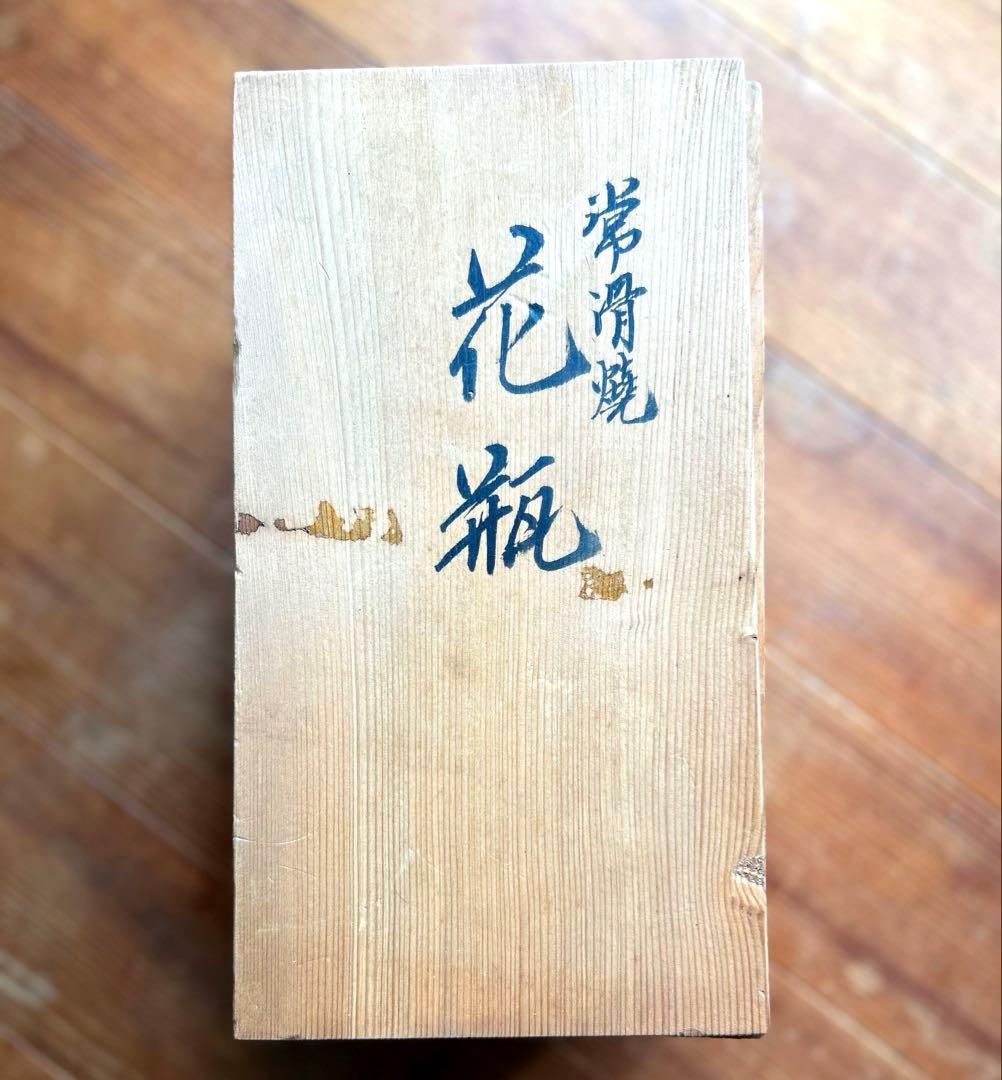 常滑燒
花瓶